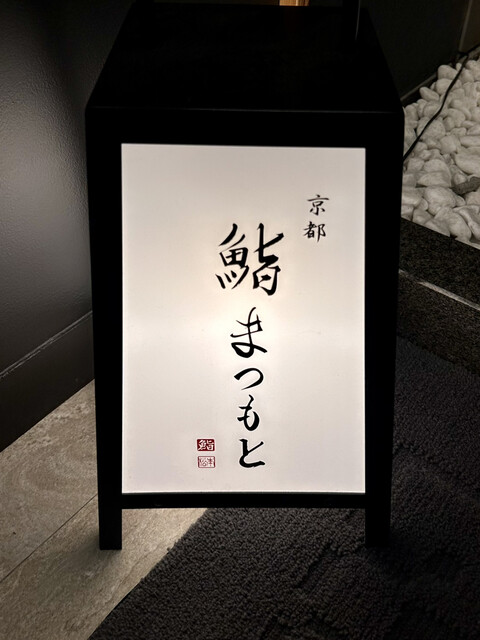 京都
鮨まつもと
鮨